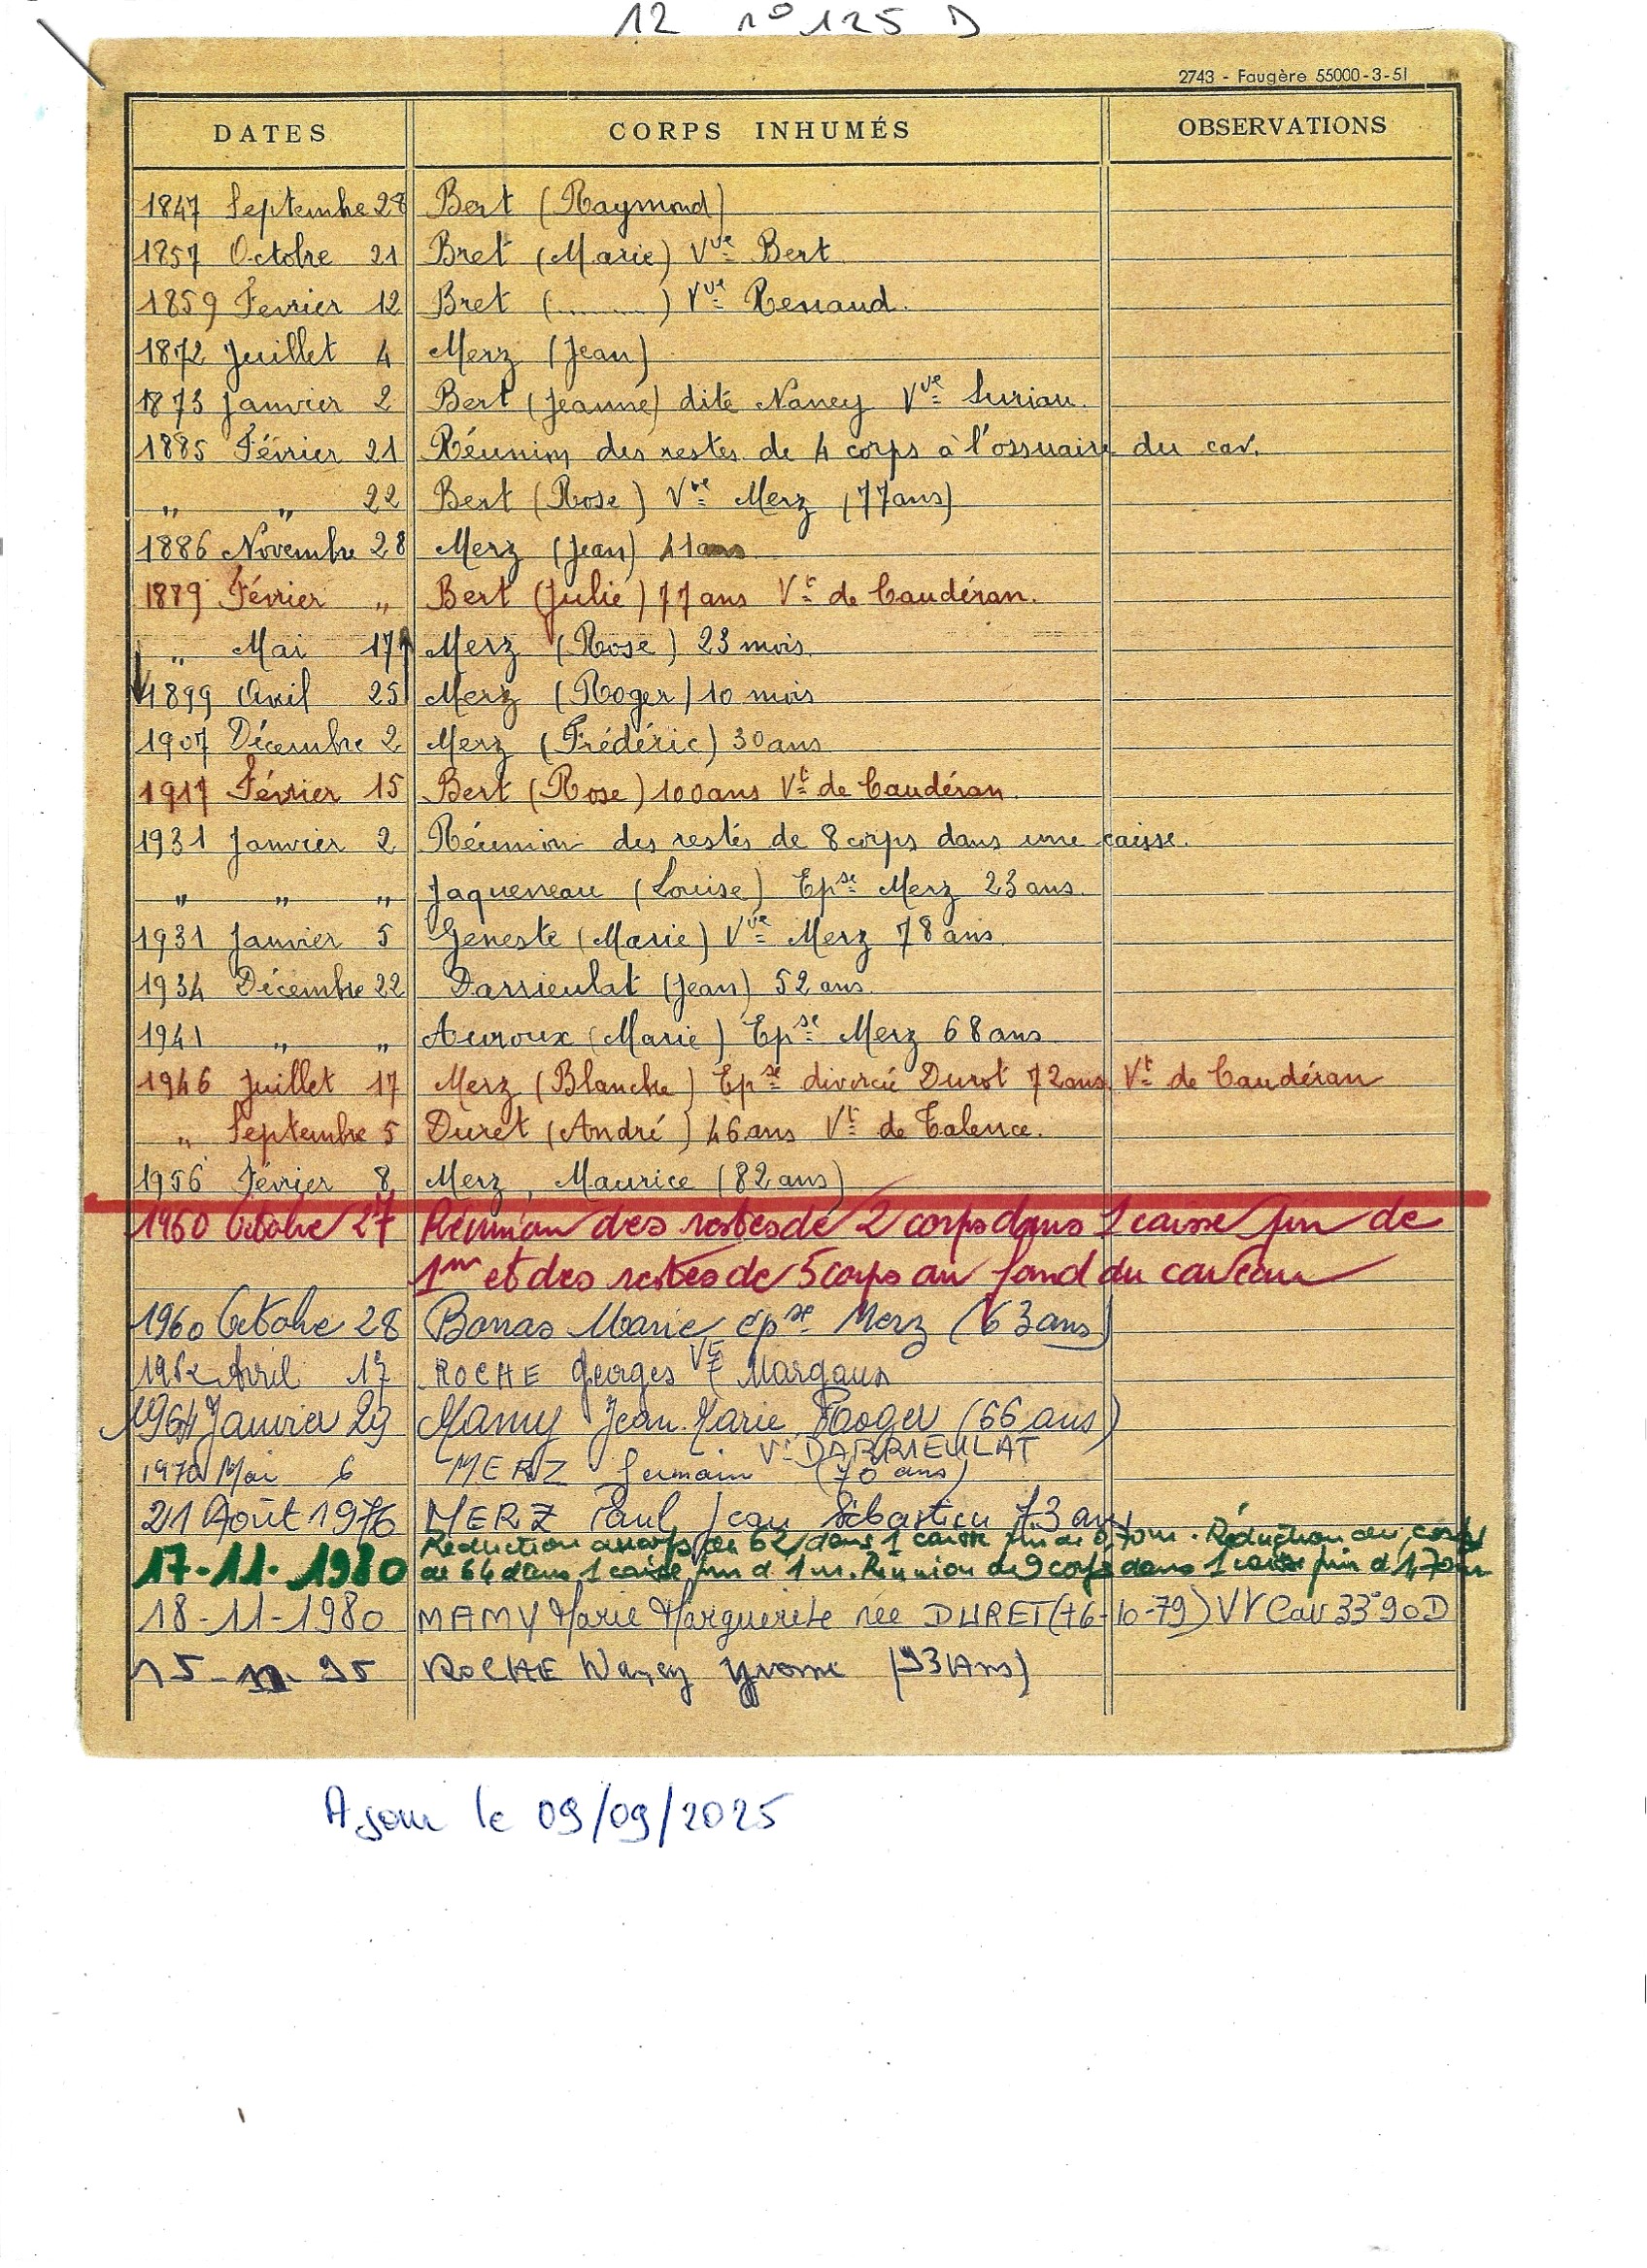 12 n° 125 D
2743 - Faugère 55000-3-51
DATES CORPS INHUMÉS OBSERVATIONS
1847 Septembre 28 Bert (Raymond)
1857 Octobre 21 Bret (Marie) Vve Bert
1859 Fevrier 12 Bret (........) Vve Renaud.
1872 Juillet 4 Merz (Jean)
1873 Janvier 2 Bert (Jeanne) dite Nancy Vve Surian.
1885 Février 21 Réunion des restes de 4 corps à l'ossuaire du cav.
" " 22 Bert (Rose) Vve Merz (77ans)
1886 Novembre 28 Merz (Jean) 41ans
1889 Février " Bert (Julie) 77ans Vt de Caudéran.
" Mai 17 Merz (Rose) 23 mois
1899 Avril 25 Merz (Roger) 10 mois
1907 Décembre 2 Merz (Frédéric) 30ans
1917 Février 15 Bert (Rose) 100ans Vt de Caudéran.
1931 Janvier 2 Réunion des restes de 8 corps dans une caisse.
" " " Jaqueneau (Louise) Epse Merz 23 ans.
1931 Janvier 5 Geneste (Marie) Vve Merz 78 ans.
1934 Décembre 22 Darrieulat (Jean) 52 ans.
1941 " " Auroux (Marie) Epse Merz 68 ans
1946 Juillet 17 Merz (Blanche) Epse divorcié Durot 72ans Vt de Caudéran
" Septembre 5 Duret (André) 46ans Vt de Talence.
1956 Février 8 Merz, Maurice (82 ans)
1960 Octobre 27 Réunion des restes de 2 corps dans 1 caisse fin de
1m et des restes de 5 corps au fond du caveau
1960 Octobre 28 Barras Marie, épse Merz (63 ans)
1962 Avril 17 ROCHE Georges Vt Margaux
1964 Janvier 29 Mamy Jean Marie Roger (66 ans)
Vve DARRIEULAT
1970 Mai 6 MERZ Germain (70 ans)
21 Août 1976 MERZ Paul Jean Sébastien 73 ans
Réduction du corps de 62 dans 1 caisse fin de 0,70m. Réduction du corps
17-11-1980 de 64 dans 1 caisse fin d 1 m. Réunion de 9 corps dans 1 caisse fin d 1,70m
18-11-1980 MAMY Marie Marguerite née DURET (+6-10-79) Vt Cav 33°90D
15- - 95 ROCHE Nancy Yvonne (93 Ans)
A jour le 09/09/2025